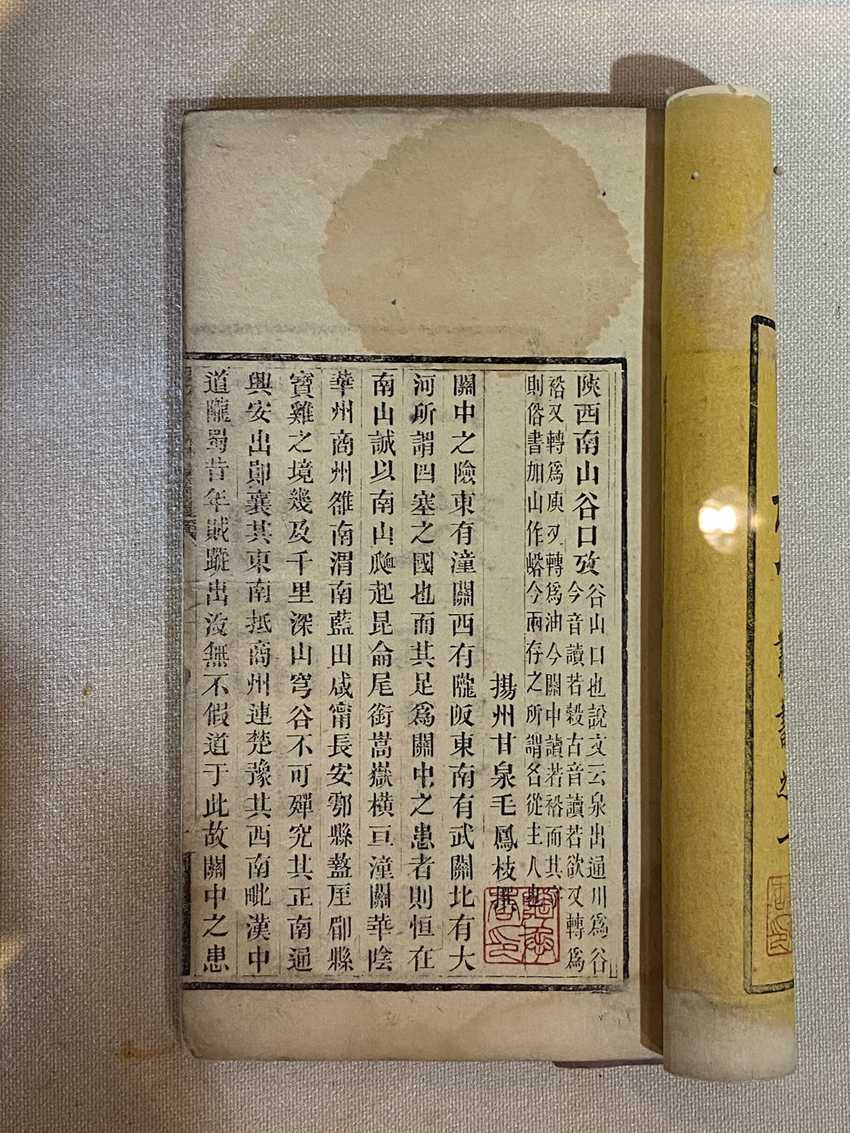 陝西南山谷口攷
谷山口也說文云泉出通川爲谷
今音讀若穀古音讀若欲又轉爲
裕又轉爲庾又轉爲油今關中讀若裕而其字
則俗書加山作峪今兩存之所謂名從主人也
揚州甘泉毛鳳枝撰
關中之險東有潼關西有隴阪東南有武關北有大
河所謂四塞之國也而其足爲關中之患者則恒在
南山誠以南山𡾰起昆侖尾銜嵩嶽橫亘潼關華陰
華州商州雒南渭南藍田咸甯長安鄠縣盩厔郿縣
寶雞之境幾及千里深山穹谷不可殫究其正南通
興安出鄖襄其東南抵商州連楚豫其西南毗漢中
道隴蜀昔年賊蹤出沒無不假道于此故關中之患
叢書之一